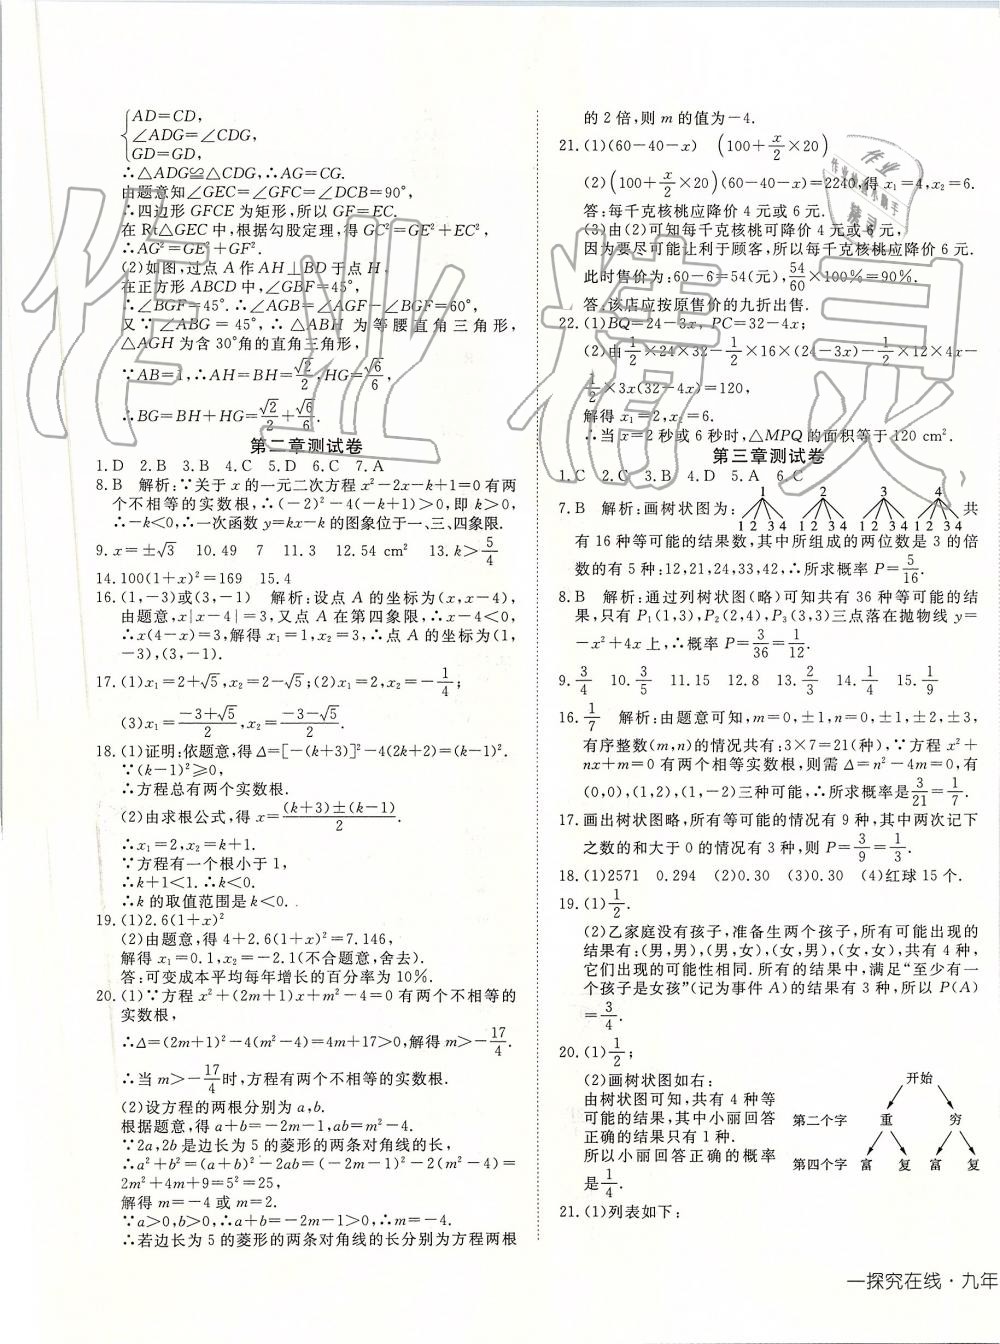 AD=CD,
∠ADG=∠CDG,
GD=GD,
∴△ADG≌△CDG,∴AG=CG.
由题意知∠GEC=∠GFC=∠DCB=90°,
∴四边形 GFCE 为矩形,所以 GF=EC.
在 Rt△GEC 中,根据勾股定理,得 GC²=GE²+EC²,
∴AG²=GE²+GF².
(2)如图,过点 A 作 AH⊥BD 于点 H,
在正方形 ABCD 中,∠GBF=45°,
∴∠BGF=45°.∴∠AGB=∠AGF-∠BGF=60°,
又∵∠ABG=45°,∴△ABH 为等腰直角三角形,
△AGH 为含 30°角的直角三角形,
∵AB=1,∴AH=BH=√2/2,HG=√6/6,
∴BG=BH+HG=√2/2+√6/6.
第二章测试卷
1.D 2.B 3.B 4.C 5.D 6.C 7.A
8.B 解析:∵关于 x 的一元二次方程 x²-2x-k+1=0 有两
个不相等的实数根,∴(-2)²-4(-k+1)>0,即 k>0,
∴-k<0,∴一次函数 y=kx-k 的图象位于一、三、四象限.
9.x=±√3 10.49 7 11.3 12.54 cm² 13.k>5/4
14.100(1+x)²=169 15.4
16.(1,-3)或(3,-1) 解析:设点 A 的坐标为(x,x-4),
由题意,x|x-4|=3,又点 A 在第四象限,∴x-4<0,
∴x(4-x)=3,解得 x₁=1,x₂=3,∴点 A 的坐标为(1,
-3),(3,-1).
17.(1)x₁=2+√5,x₂=2-√5;(2)x₁=2,x₂=-1/4;
(3)x₁=(-3+√5)/2,x₂=(-3-√5)/2.
18.(1)证明:依题意,得 Δ=[-(k+3)]²-4(2k+2)=(k-1)².
∵(k-1)²≥0,
∴方程总有两个实数根.
(2)由求根公式,得 x=((k+3)±(k-1))/2.
∴x₁=2,x₂=k+1.
∵方程有一个根小于 1,
∴k+1<1.∴k<0.
∴k 的取值范围是 k<0.
19.(1)2.6(1+x)²
(2)由题意,得 4+2.6(1+x)²=7.146,
解得 x₁=0.1,x₂=-2.1(不合题意,舍去).
答:可变成本平均每年增长的百分率为 10%.
20.(1)∵方程 x²+(2m+1)x+m²-4=0 有两个不相等的
实数根,
∴Δ=(2m+1)²-4(m²-4)=4m+17>0,解得 m>-17/4.
∴当 m>-17/4时,方程有两个不相等的实数根.
(2)设方程的两根分别为 a,b.
根据题意,得 a+b=-2m-1,ab=m²-4.
∵2a,2b 是边长为 5 的菱形的两条对角线的长,
∴a²+b²=(a+b)²-2ab=(-2m-1)²-2(m²-4)=
2m²+4m+9=5²=25,
解得 m=-4 或 m=2.
∵a>0,b>0,∴a+b=-2m-1>0,∴m=-4.
∴若边长为 5 的菱形的两条对角线的长分别为方程两根
的 2 倍,则 m 的值为-4.
21.(1)(60-40-x) (100+x/2×20)
(2)(100+x/2×20)(60-40-x)=2240,得 x₁=4,x₂=6.
答:每千克核桃应降价 4 元或 6 元.
(3)由(2)可知每千克核桃可降价 4 元或 6 元,
因为要尽可能让利于顾客,所以每千克核桃应降价 6 元.
此时售价为:60-6=54(元),54/60×100%=90%.
答:该店应按原售价的九折出售.
22.(1)BQ=24-3x,PC=32-4x;
(2)由1/2×24×32-1/2×16×(24-3x)-1/2×12×4x-
1/2×3x(32-4x)=120,
解得 x₁=2,x₂=6.
∴当 x=2 秒或 6 秒时,△MPQ 的面积等于 120 cm².
第三章测试卷
1.C 2.C 3.B 4.D 5.A 6.C
1 2 3 4
7.B 解析:画树状图为: 共
1 2 3 4 1 2 3 4 1 2 3 4 1 2 3 4
有 16 种等可能的结果数,其中所组成的两位数是 3 的倍
数的有 5 种:12,21,24,33,42,∴所求概率 P=5/16.
8.B 解析:通过列树状图(略)可知共有 36 种等可能的结
果,只有 P₁(1,3),P₂(2,4),P₃(3,3)三点落在抛物线 y=
-x²+4x 上,∴概率 P=3/36=1/12.
9.3/4 10.3/5 11.15 12.8 13.2/3 14.1/4 15.1/9
16.1/7 解析:由题意可知,m=0,±1,n=0,±1,±2,±3,
有序整数(m,n)的情况共有:3×7=21(种),∵方程 x²+
nx+m=0 有两个相等实数根,则需 Δ=n²-4m=0,有
(0,0),(1,2),(1,-2)三种可能,∴所求概率是3/21=1/7.
17.画出树状图略,所有等可能的情况有 9 种,其中两次记下
之数的和大于 0 的情况有 3 种,则 P=3/9=1/3.
18.(1)2571 0.294 (2)0.30 (3)0.30 (4)红球 15 个.
19.(1)1/2.
(2)乙家庭没有孩子,准备生两个孩子,所有可能出现的
结果有:(男,男),(男,女),(女,男),(女,女),共有 4 种,
它们出现的可能性相同.所有的结果中,满足“至少有一
个孩子是女孩”(记为事件 A)的结果有 3 种,所以 P(A)
=3/4.
20.(1)1/2;
(2)画树状图如右:
由树状图可知,共有 4 种等
可能的结果,其中小丽回答
正确的结果只有 1 种.
所以小丽回答正确的概率
是1/4.
开始
第二个字 重 穷
第四个字 富 复 富 复
21.(1)列表如下:
一探究在线·九年
作业精灵